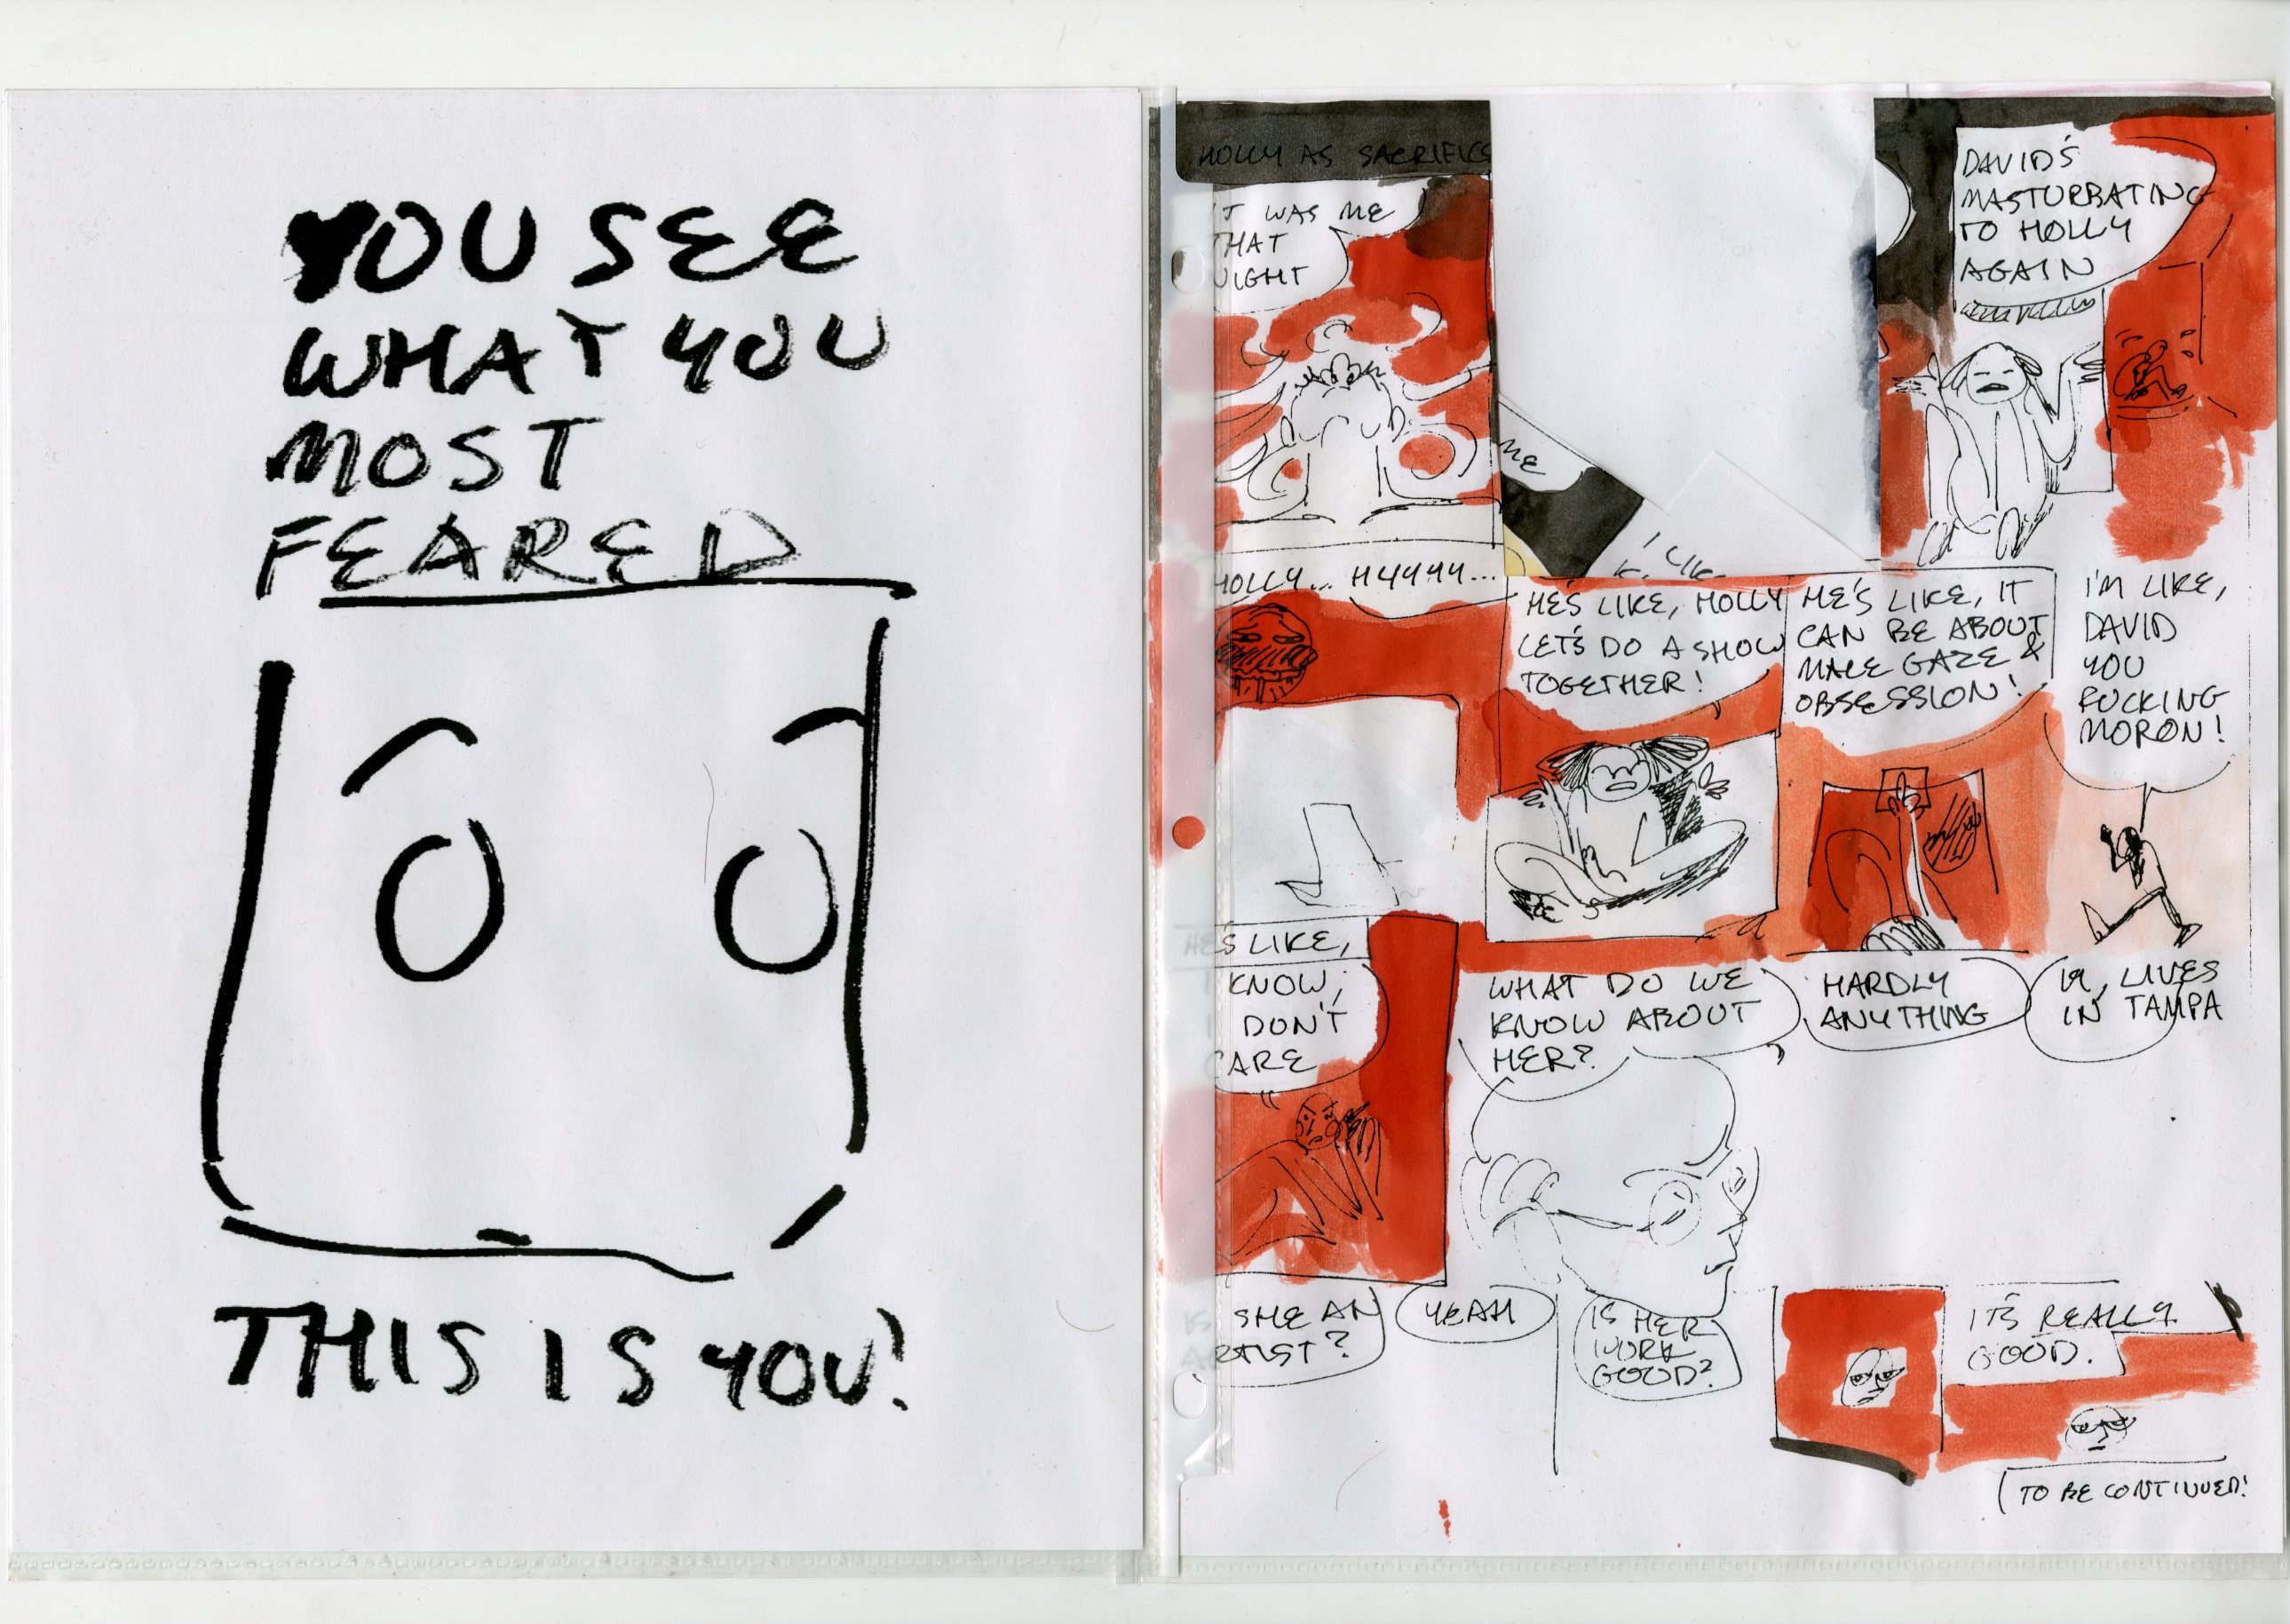 YOU SEE
WHAT YOU
MOST
FEARED
THIS IS YOU!
HOLLY AS SACRIFICE
IT WAS ME
THAT
NIGHT
DAVID'S
MASTURBATING
TO HOLLY
AGAIN
ME
I LIK
HOLLY... HYYYY...
HE'S LIKE, HOLLY
LET'S DO A SHOW
TOGETHER!
HE'S LIKE, IT
CAN BE ABOUT
MALE GAZE &
OBSESSION!
I'M LIKE,
DAVID
YOU
FUCKING
MORON!
HE'S LIKE,
I KNOW,
I DON'T
CARE
WHAT DO WE
KNOW ABOUT
HER?
HARDLY
ANYTHING
LIVES
IN TAMPA
IS SHE AN
ARTIST?
YEAH
IS HER
WORK
GOOD?
IT'S REALLY
GOOD.
TO BE CONTINUED!